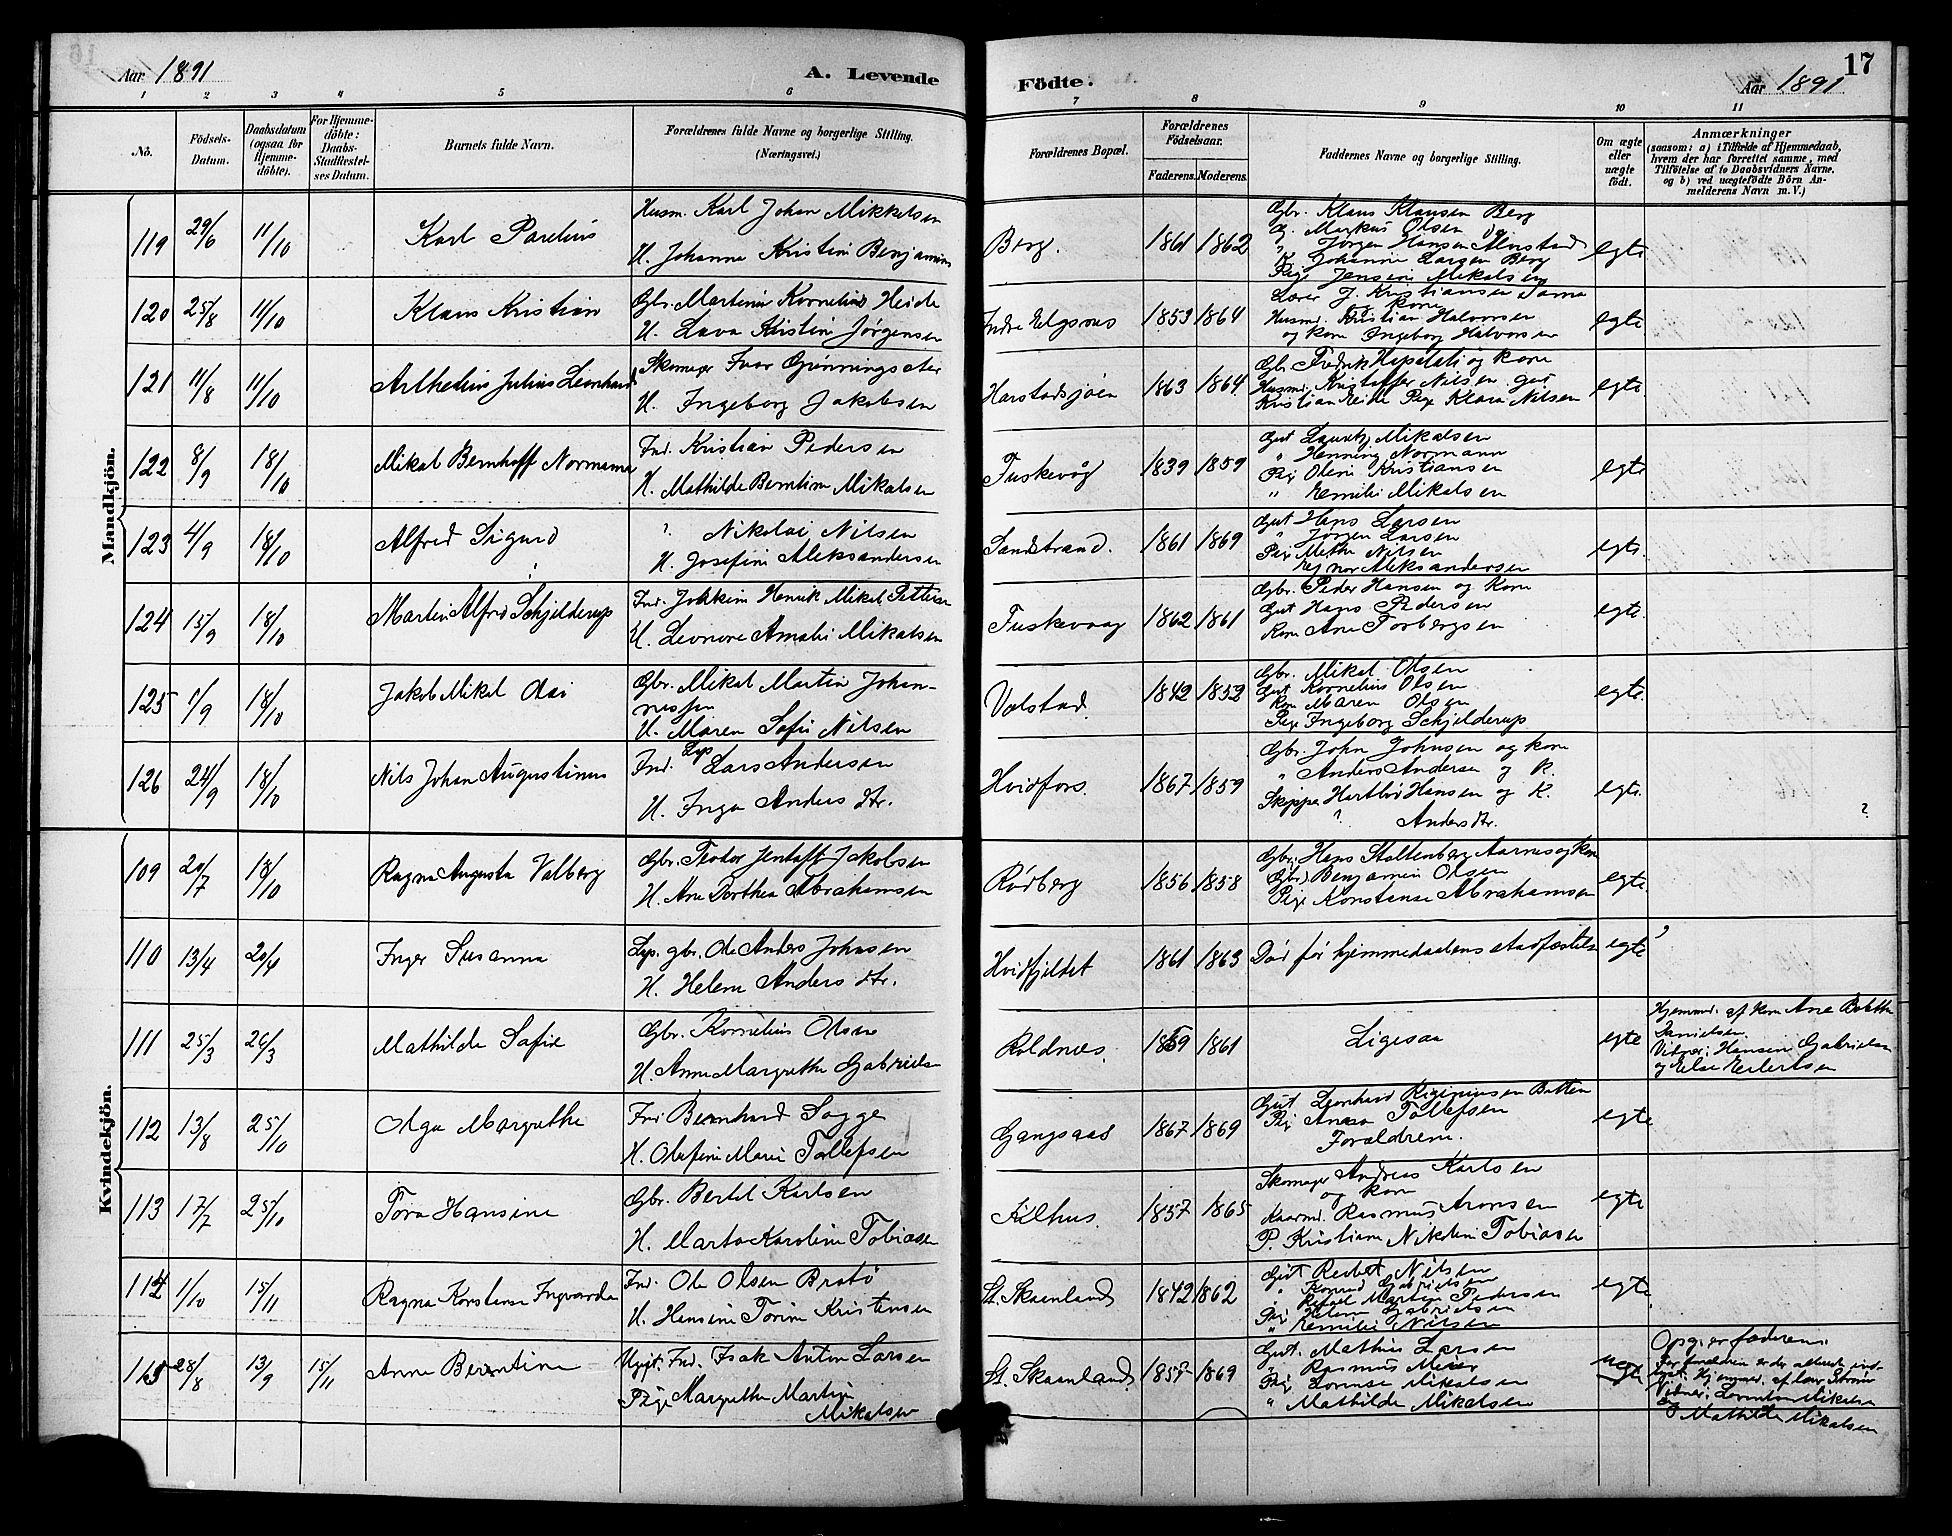 Aar 1891
A. Levende
Födte.
Aar 1891
17
1 2 3 4 5 6 7 8 9 10 11
No.
Födsels-
Datum.
Daabsdatum
(ogsaa for
Hjemme-
döbte).
For Hjemme-
döbte:
Daabs-
Stadfæstel-
ses Datum.
Barnets fulde Navn.
Forældrenes fulde Navne og borgerlige Stilling.
(Næringsvei.)
Forældrenes Bopæl.
Forældrenes
Födselsaar.
Faderens. Moderens.
Faddernes Navne og borgerlige Stilling.
Om ægte
eller
uægte
født.
Anmærkninger
(saasom: a) i Tilfælde af Hjemmedaab,
hvem der har forrettet samme, med
Tilföielse af to Daabsvidners Navne.
og b) ved uægtefödte Börn An-
melderens Navn m. V.)
Mandkjön.
119 29/6 11/10 Karl Parelius
Husm. Karl Johan Mikkelsen
H. Johanna Kristine
Berg. 1861 1862
Gbr. Klaus Klausen Berg
G. Markus Olsen og
" Jørgen Hansen
K. Johanna Larsen Berg
Pige Jensine Mikalsen
egte
120 25/8 11/10 Klaus Kristian
Gbr. Martinus Kornelius Heide
H. Lava Kristin Jørgensen
Indre Elgsnes 1853 1864
Lærer J. Kristiansen Dama
og kone
Husmd. Kristian Halvorsen
og kone Ingeborg Halvorsen
egte
121 11/8 11/10 Arthelius Julius Leonhard
Skomager Ivar Grønningsæter
H. Ingeborg Jakobsen
Harstadsjøen 1863 1864
Gbr. Fredrik og kone
Husmd. Kristoffer Nilsen gut
Kristian Heide Pige Klara Nilsen
egte.
122 8/9 18/10 Mikal Bernhoff Normann
Ind. Kristian Pedersen
H. Mathilde Berntine Mikalsen
Fuskevåg 1839 1859
Gut Lauritz Mikalsen
" Henning Normann
Pige Oline Kristiansen
" Emilie Mikalsen
egte
123 4/9 18/10 Alfred Sigurd
? Nikolai Nilsen
H. Josefine Aleksandersen
Sandstrand. 1861 1869
Gut Hans Larsen
" Jörgen Larsen
Pige Methe Nilsen
Aleksandersen
egte.
124 15/9 18/10 Martin Alfred Schjelderup
Ind. Jokkim Henrik Mikal Pettersen
H. Leonore Amalie Mikalsen
Fuskevaag 1862 1861
Gbr. Peder Hansen og kone
Gut Hans Pedersen
Kone Ane Torbergsen
egte.
125 1/9 18/10 Jakob Mikal Olai
Gbr. Mikal Martin Johan-
nessen
H. Maren Sofie Nilsen
Volstad. 1842 1852
Gbr. Mikal Olsen
Gut Kornelius Olsen
Kone Maren Olsen
Pige Ingeborg Schjelderup
egte.
126 24/9 18/10 Nils Johan Augustinus
Ind. Lap Lars Andersen
H. Inga Anders dtr.
Hvidfors. 1867 1859
Gbr. John Johnsen og kone
" Anders Andersen og K.
Skipper Hartvid Hansen og K.
? Andersdtr.
egte.
?
Kvindekjön.
109 20/7 18/10 Ragna Augusta Valberg
Gbr. Teodor Jentoft Jakobsen
H. Ane Dorthea Abrahamsen
Rødberg 1856 1858
Gbr. Hans Stoltenberg Aarnes og kone
Gbr. Benjamin Olsen
Pige Konstanse Abrahamsen
egte
110 13/4 20/4 Inger Susanna
Lap. gbr. Ole Anders Johnsen
H. Helene Anders dtr.
Hvidfjeldet 1861 1863
Død før hjemmedaabens stadfæstelse
egte ?
111 25/3 26/3 Mathilde Sofie
Gbr. Kornelius Olsen
H. Anne Margrethe Gabrielsen
Roldnes. 1859 1861
Ligesaa
egte
Hjemmed. af kone Ane
Danielsen
Vidner: Hansen Gabrielsen
og Else Eilertsen
112 13/8 25/10 Olga Margrethe
Ind Bernhard Sagge
H. Olufine Marie Tollefsen
Gangsaas 1867 1869
Gut Leonhard
Pige Anna Tollefsen
Forældrene.
egte
113 17/7 25/10 Tora Hansine
Gbr. Bertel Karlsen
H. Marta Karoline Tobiasen
Kilhus. 1857 1865
Skomager Andreas Karlsen
og kone
Rasmus Aronsen
P. Kristiane Nikoline Tobiasen
egte
114 1/10 15/11 Ragna Konstanse Ingvarda
Ind. Ole Olsen Bratö
H. Hansine Torine Kristensen
St. Skaanland 1842 1862
Gut Nilsen
" Konrad Gabrielsen
" Martin Pedersen
Pige Helene Gabrielsen
" Emilie Nilsen
egte.
115 28/8 13/9 15/11 Anne Berntine
Ugift. Ind. Isak Anton Larsen
Pige Margrethe Martine
Mikalsen
St. Skaanland. 1857 1869
Gut. Mathis Larsen
" Rasmus Meier
Pige Lorense Mikalsen
" Mathilde Mikalsen
uegte
Opg. er faderen.
Før forældrene er der allerede ind-
Hjemmed. af Strøm
Vidner: Mikalsen
og Mathilde Mikalsen